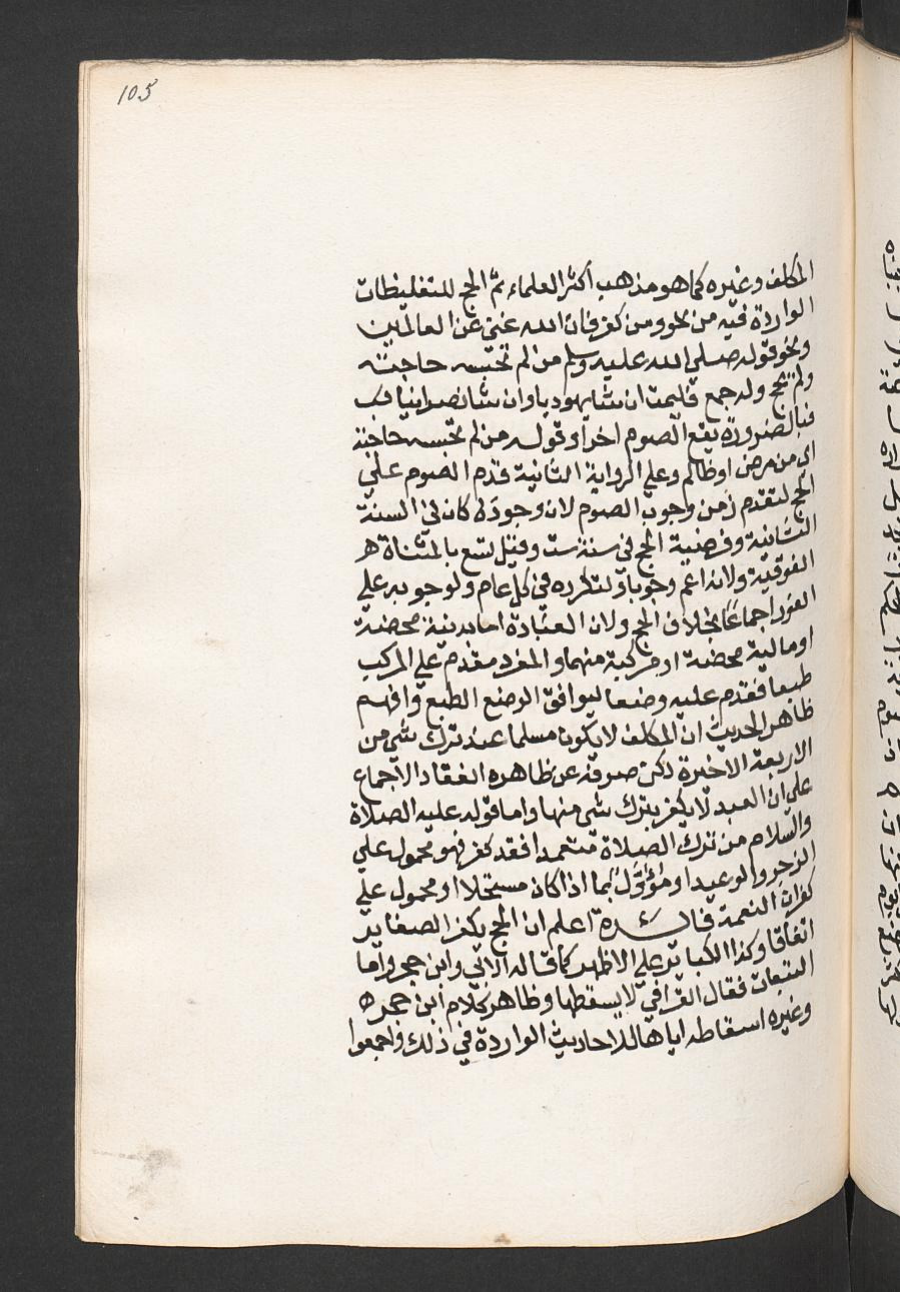 105
المكلف وغيره كما هو مذهب أكثر العلماء ثم الحج للتغليظات
الواردة فيه من نحو ومن كفر فان الله غني عن العالمين
ونحو قوله صلى الله عليه وسلم من لم تحبسه حاجته
ولم يحج ولد جمع فليمت ان شا يهوديا وان شا نصرانيا
فبالضرورة يقع الصوم اخرا وقوله من لم تحبسه حاجته
اي من مرض او ظالم وعلي الرواية الثانية قدم الصوم علي
الحج لتقدم زمن وجوب الصوم لان وجوده كان في السنة
الثانية وفرضية الحج في سنة ست وقيل تسع بالمثناة
الفوقية ولانه اعم وجوبا ولتكرره في كل عام ولوجوبه علي
الفور اجماعا بخلاف الحج ولان العبادة اما بدنية محضة
او مالية محضة او مركبة منهما والمفرد مقدم علي المركب
طبعا فقدم عليه وضعا ليوافق الوضع الطبع وافهم
ظاهر الحديث ان المكلف لا يكون مسلما عند ترك شي من
الاربعة الاخيرة لكن صرفه عن ظاهره انعقاد الاجماع
علي ان العبد لا يكفر بترك شي منها واما قوله عليه الصلاة
والسلام من ترك الصلاة متعمدا فقد كفر فهو محمول علي
الزجر والوعيد او مؤول بما اذا كان مستحلا او محمول علي
كفران النعمة فائدة اعلم ان الحج يكفر الصغاير
اتفاقا وكذا الكباير علي الاظهر كما قاله الابي وابن حجر واما
التبعات فقال القرافي لا يسقطها وظاهر كلام ابن حجر
وغيره اسقاطه اياها للاحاديث الواردة في ذلك واجمعوا